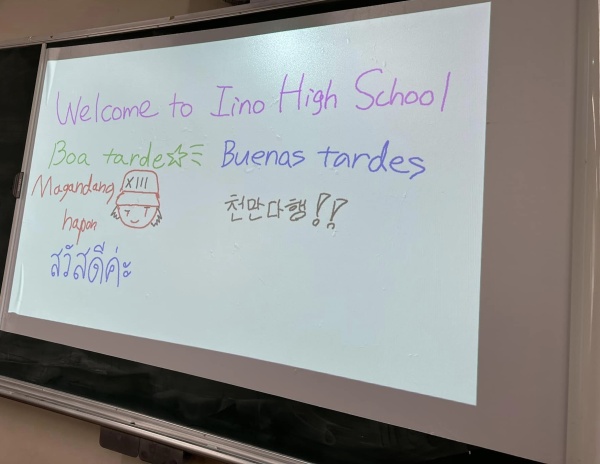 Welcome to Iino High School
Boa tarde☆ Buenas tardes
Magandang
XIII
hapon
천만다행!?
สวัสดีค่ะ